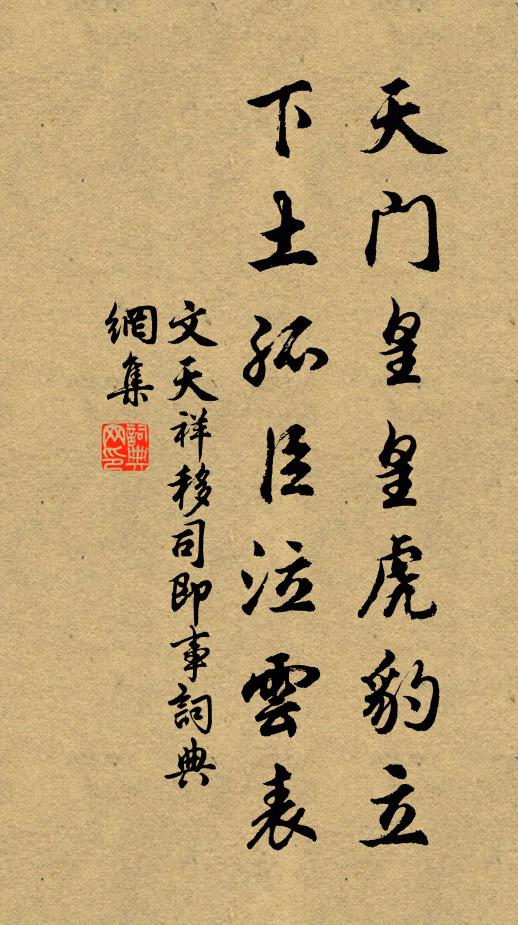 天门皇皇虎豹立
下土孤臣泣雲表
文天祥移司即事詞典
網集
詞典
网印